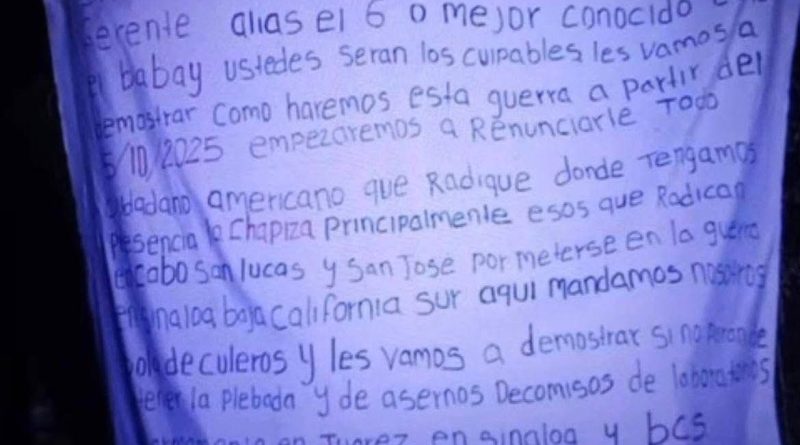 Gerente alias el 6 o mejor conocido
el babay ustedes seran los culpables les vamos a
demostrar como haremos esta guerra a partir del
5/10/2025 empezaremos a Renunciarle Todo
americano que Radique donde Tengamos
Presencia la Chapiza Principalmente esos que Radican
en cabo san lucas y san Jose por meterse en la guerra
en sinaloa baja california sur aqui mandamos nosotros
bola de culeros y les vamos a demostrar si no
la Plebada y de asernos Decomisos de laboratorios
en Juarez en sinaloa y bcs